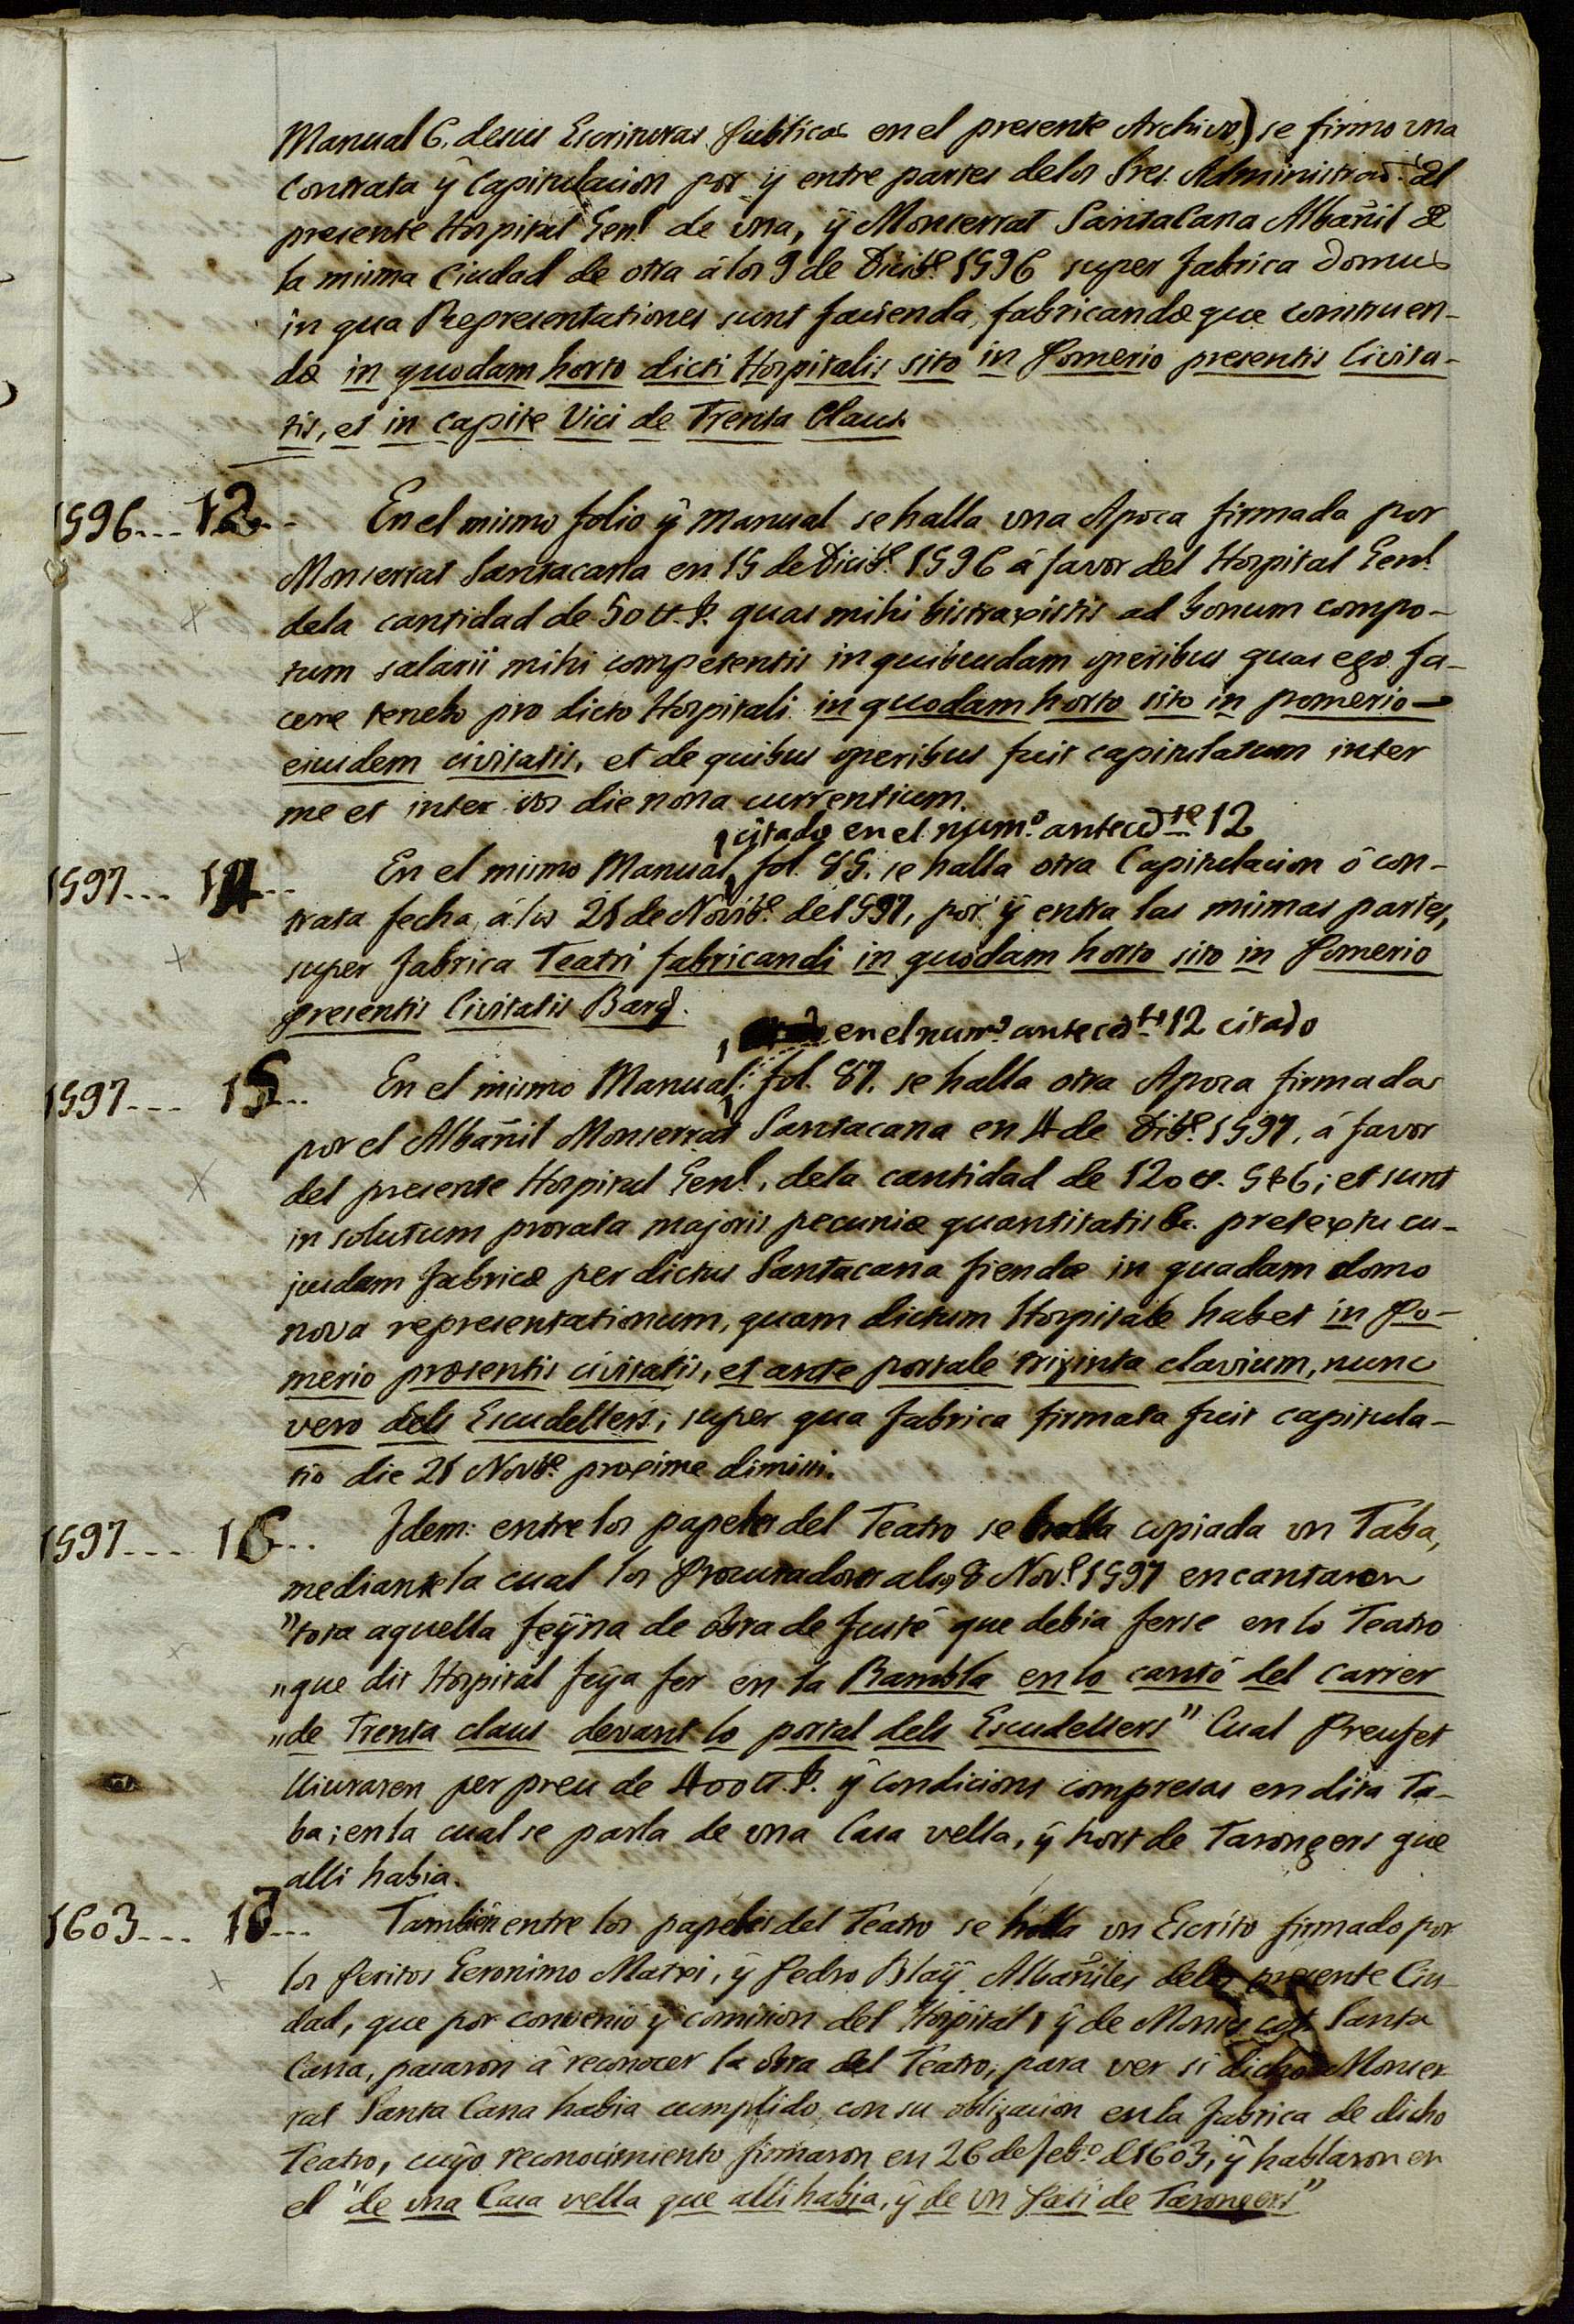 Manual 6. desus Escrituras Publicas en el presente Archivo) se firmo una
Contrata ÿ Capitulacion por ÿ entre partes delos Sres. Administrad.s del
presente Hospital Genl. de una, ÿ Monserrat SantaCana Albañil de
la misma Ciudad de otra á los 9 de Dicibe. 1596 super fabrica Domus
in qua Representationes sunt facienda, fabricandæ que construen-
dæ in quodam horto dicti Hospitalis sito in Pomerio presentis Civita-
tis, et in capite Vici de Trenta Claus.
1596... 12.. En el mismo folio ÿ manual se halla una Apoca firmada por
Monserrat Santacana en 15 de Dicibe. 1596 á favor del Hospital Genl.
dela cantidad de 50 tt. quas mihi bistraxistis ad bonum compo-
tum salarii mihi competentis in quibusdam operibus quas ego fa-
cere teneto pro dicto Hospitali in quodam horto sito in pomerio
eiusdem civitatis, et de quibus operibus fuit capitulatum inter
me et inter vos die nona currentium.
citado en el numo. anteced.te 12
1597... 14... En el mismo Manual, fol. 85. se halla otra Capitulacion ó con-
trata fecha á los 21 de Novibe. del 597, por ÿ entra las mismas partes,
super fabrica Teatri fabricandi in quodam horto sito in Pomerio
presentis Civitatis Barq.
en el numo. anteced.te 12 citado
1597... 15... En el mismo Manual, fol. 87. se halla otra Apoca firmadas
por el Albañil Monserrat Santacana en 4 de Dibe. 1597, á favor
del presente Hospital Genl., dela cantidad de 120 tt. 5 s 6; et sunt
in solutum prorata majoris pecuniæ quantitatis &c. pretextu cu-
jusdam fabricæ per dictus Santacana fiendæ in quadam domo
nova representationum, quam dictum Hospitale habet in Po-
merio præsentis civitatis, et ante portale triginta clavium, nunc
vero dels Escudellers; super qua fabrica firmata fuit capitula-
tio die 21 Novbe. proxime dimissi.
1597... 16... Idem: entre los papeles del Teatro se halla copiada un Taba,
mediante la cual los Procuradores alos 8 Nove. 1597 encantaron
"tota aquella feÿna de obra de fusté que debia ferse en lo Teatro
"que dit Hospital feÿa fer en la Rambla en lo cantó del Carrer
"de Trenta claus devant lo portal dels Escudellers" Cual Preufet
lliuraren per preu de 400 tt. ÿ condicions compresas en dita Ta-
ba; en la cual se parla de una Casa vella, ÿ hort de Tarongers que
alli habia.
1603... 17... Tambien entre los papeles del Teatro se halla un Escrito firmado por
los Peritos Geronimo Matxi, ÿ Pedro Blaÿ Albañiles dela presente Ciu-
dad, que por convenio ÿ comision del Hospital, ÿ de Santa
Cana, pasaron á reconocer la obra del Teatro, para ver si dicho Monser-
rat Santa Cana habia cumplido con su obligacion en la fabrica de dicho
Teatro, cuÿo reconocimiento firmaron en 26 de febo. d 1603, ÿ hablaron en
el "de una Casa vella que alli habia, ÿ de un Pati de Tarongers"